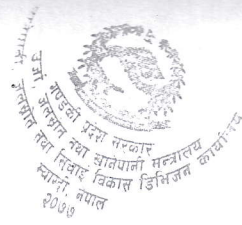 गण्डकी प्रदेश सरकार
उर्जा, जलस्रोत तथा खानेपानी मन्त्रालय
जलस्रोत तथा सिंचाई विकास डिभिजन कार्यालय
स्याङ्जा, नेपाल
२०७७